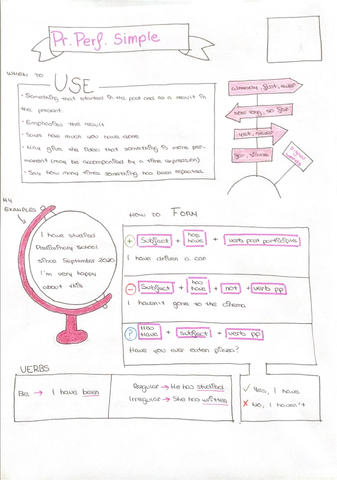 Pr. Perf. Simple
WHEN TO USE
· Something that started in the past and as a result in
the present.
· Emphasise the result
· Says how much you have done
· May give the idea that something is more per-
moment (may be accompanied by a time expression)
· Say how many times something has been repeated
already, just, ever
how long, so far
yet, never
for, since
signal words
MY EXAMPLES
I have studied
Possitionary School
since September 2020
I'm very happy
about this
HOW TO FORM
+ Subject + has have + verb past participle
I have driven a car
- Subject + has have + not + verb pp
I haven't gone to the cinema
? Has Have + subject + verb pp
Have you ever eaten pizza?
VERBS
Be → I have been
Regular → He has studied
Irregular → She has written
✓ Yes, I have
✗ No, I haven't